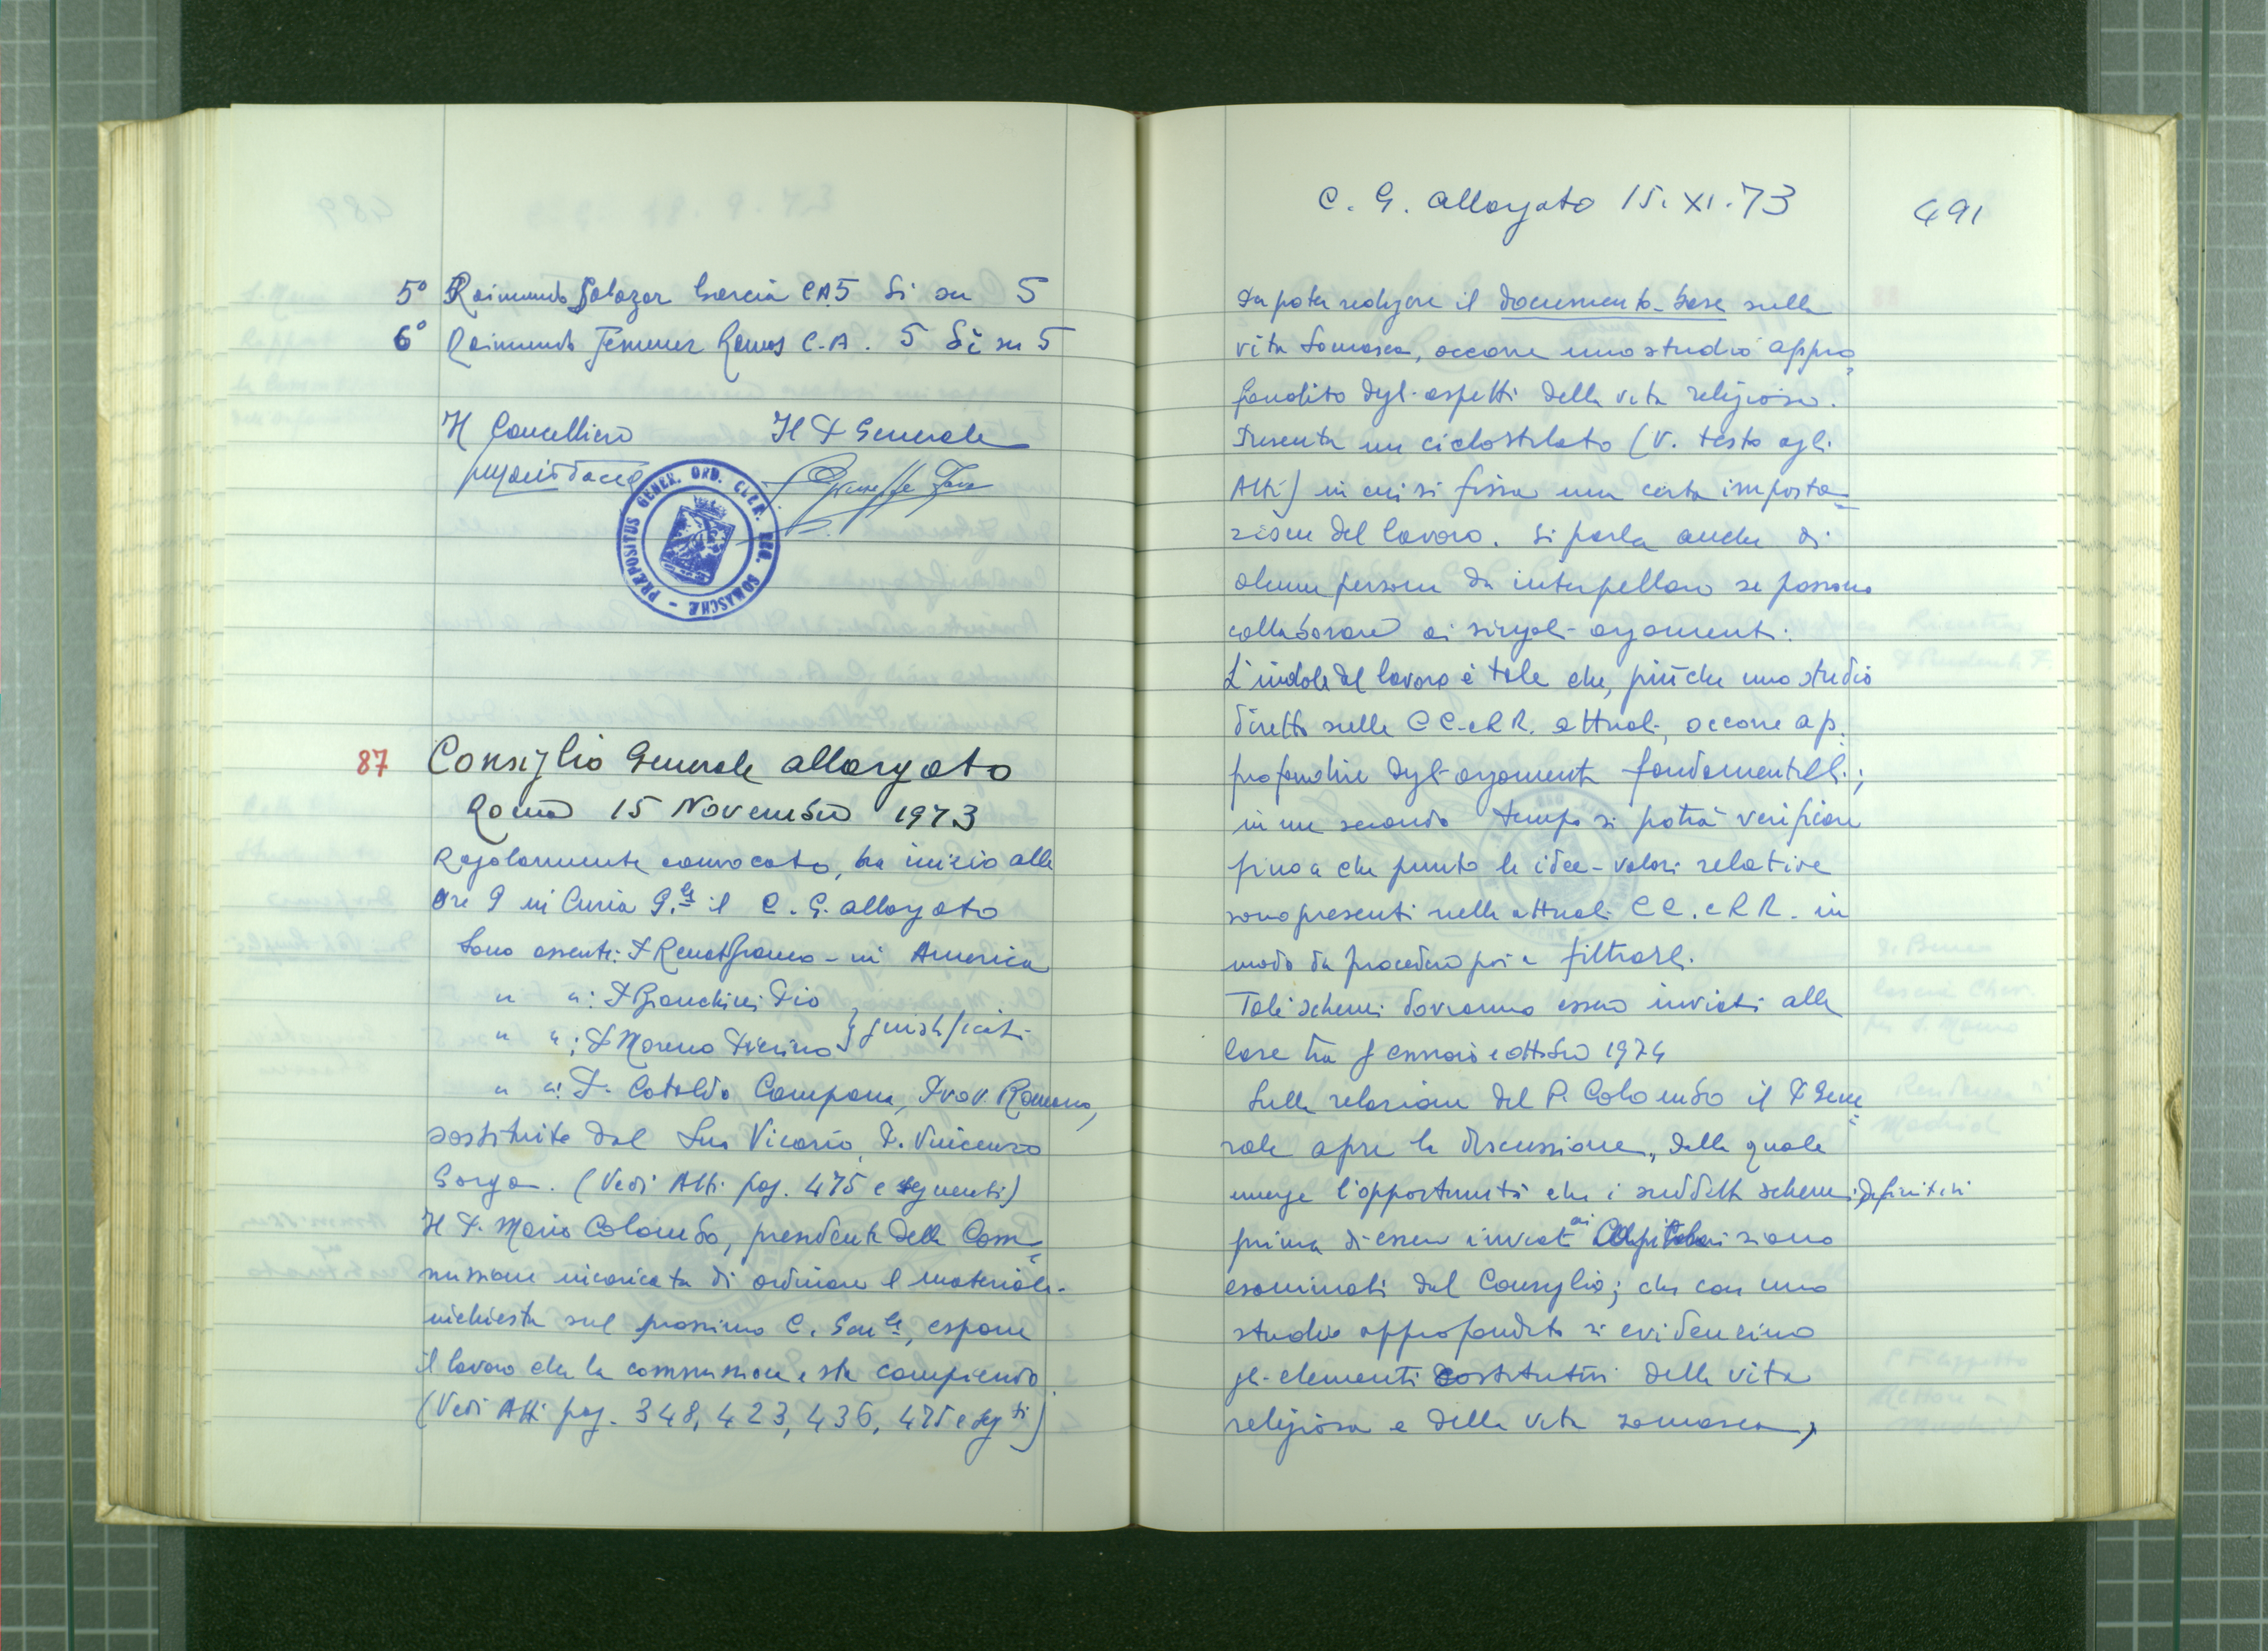 5º Raimundo Salazar Garcia C.A. 5 Si su 5
6º Raimundo Jemenez Ramos C.A. 5 Si su 5
Il Cancelliere Il P. Generale
PRÆPOSITUS GENER. ORD. CLER. REG. SOMASCHÆ
87 Consiglio Generale allargato
Roma 15 Novembre 1973
Regolarmente convocato, ha inizio alle
ore 9 in Curia G.le il C. G. allargato
Sono assenti: P. Renat Franco - in America
" ": P. Bianchini Pio
" ": P. Moreno Pierino } giustificati
" ": P. Cataldo Campana, Prov. Romano,
sostituito dal Suo Vicario, P. Vincenzo
Gorga. (Vedi Atti pag. 475 e seguenti)
Il P. Mario Colombo, presidente della Com=
missione incaricata di ordinare il materiale-
inchiesta sul prossimo C. Gen.le, espone
il lavoro che la commissione sta compiendo
(Vedi Atti pag. 348, 423, 436, 475 e seg.ti)
C. G. allargato 15. XI. 73 491
Da poter redigere il documento-base sulla
vita Somasca, occorre uno studio appro=
fondito degli aspetti della vita religiosa.
Presenta un ciclostilato (V. testo agli
Atti) in cui si fissa una certa imposta=
zione del lavoro. Si parla anche di
alcune persone da interpellare se possono
collaborare ai singoli argomenti.
L'indole del lavoro è tale che, più che uno studio
diretto sulle CC. e RR. attuali, occorre ap=
profondire degli argomenti fondamentali;
in un secondo tempo si potrà verificare
fino a che punto le idee-valori relative
sono presenti nelle attuali CC. e RR. in
modo da procedere poi a filtrarli.
Tali schemi dovranno essere inviati alle
Case tra gennaio e ottobre 1974
Sulla relazione del P. Colombo il P. Gene=
rale apre la discussione, dalla quale
emerge l'opportunità che i suddetti schemi definitivi
prima di essere inviati ai Capitolari siano
esaminati dal Consiglio; che con uno
studio approfondito si evidenzino
gli elementi costitutivi della vita
religiosa e della vita somasca,